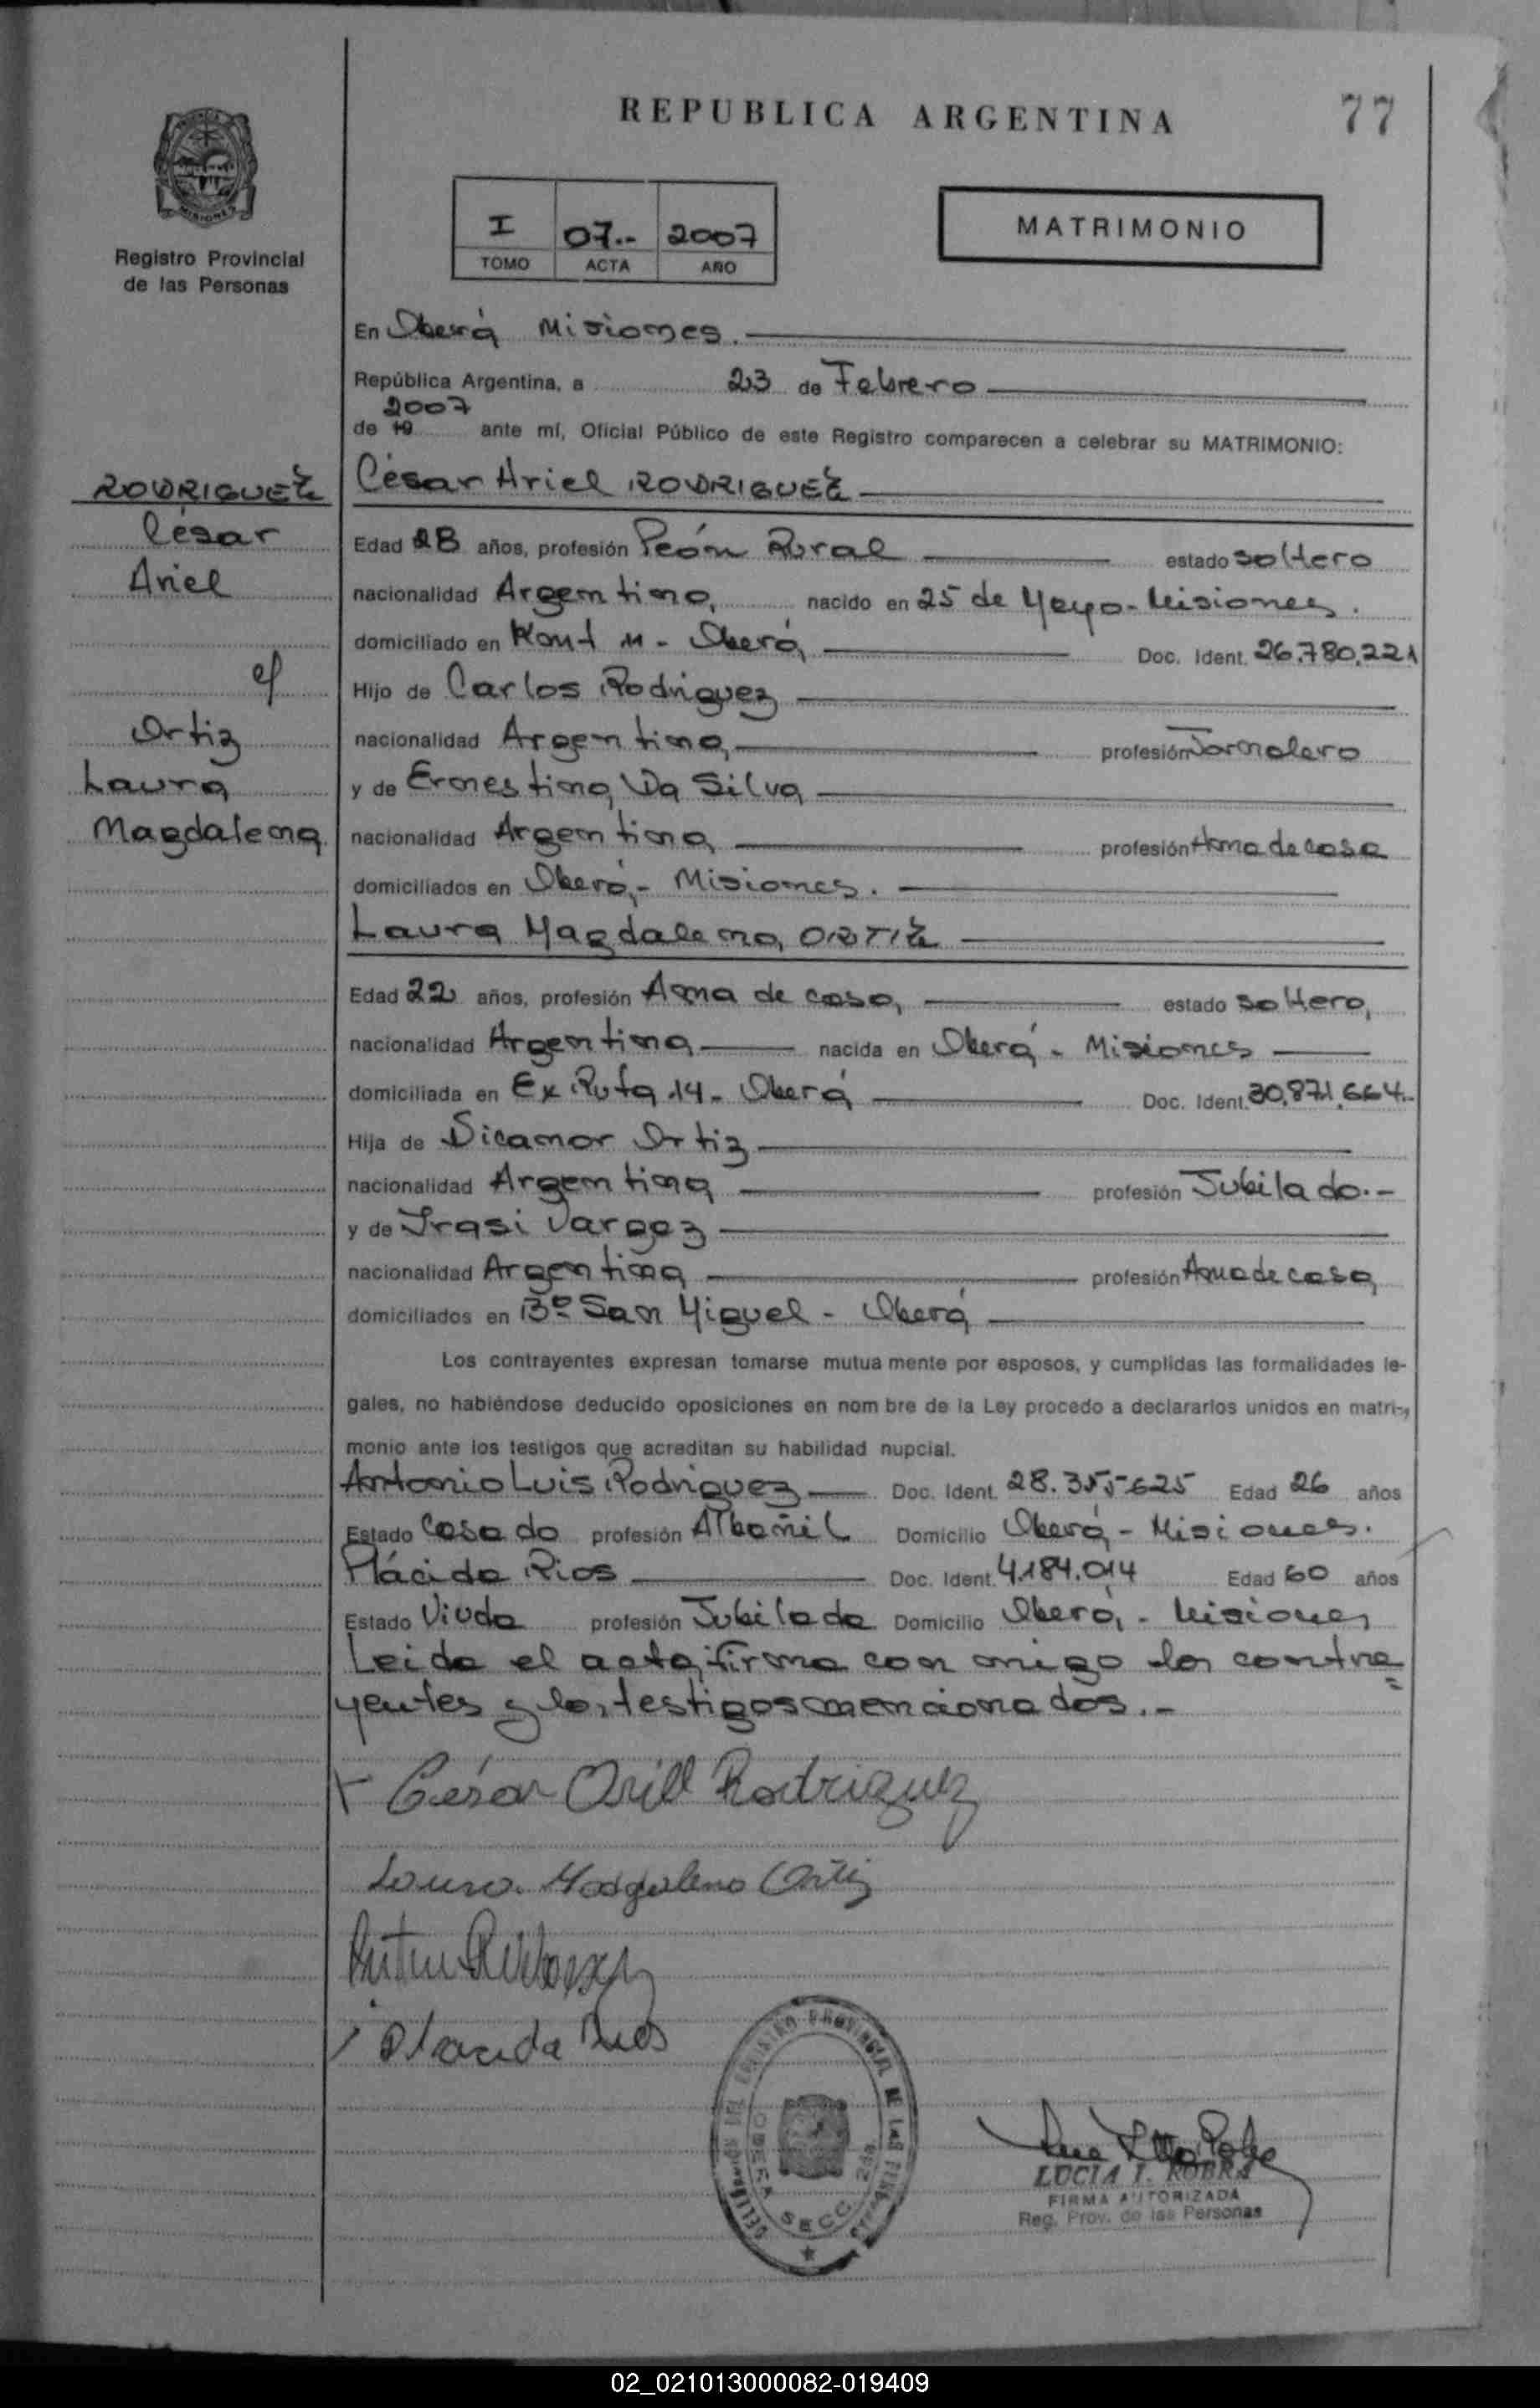 REPUBLICA ARGENTINA
77
MISIONES
Registro Provincial
de las Personas
I 07.- 2007
TOMO ACTA AÑO
MATRIMONIO
En Oberá Misiones.
República Argentina, a 23 de Febrero
2007
de 19 ante mí, Oficial Público de este Registro comparecen a celebrar su MATRIMONIO:
RODRIGUEZ
César
Ariel
c/
Ortiz
Laura
Magdalena
César Ariel RODRIGUEZ
Edad 28 años, profesión Peón Rural estado soltero
nacionalidad Argentina, nacido en 25 de Mayo - Misiones.
domiciliado en Oberá Doc. Ident. 26.780.221
Hijo de Carlos Rodriguez
nacionalidad Argentina, profesión Jornalero
y de Ernestina Da Silva
nacionalidad Argentina profesión Ama de casa
domiciliados en Oberá,- Misiones.
Laura Magdalena ORTIZ
Edad 22 años, profesión Ama de casa, estado soltera,
nacionalidad Argentina nacida en Oberá - Misiones
domiciliada en Ex Ruta 14 - Oberá Doc. Ident. 30.871.664.-
Hija de Sicamor Ortiz
nacionalidad Argentina profesión Jubilado.-
y de Irasi Vargez
nacionalidad Argentina profesión Ama de casa
domiciliados en Bº San Miguel - Oberá
Los contrayentes expresan tomarse mutua mente por esposos, y cumplidas las formalidades le-
gales, no habiéndose deducido oposiciones en nom bre de la Ley procedo a declararlos unidos en matri-
monio ante los testigos que acreditan su habilidad nupcial.
Antonio Luis Rodriguez Doc. Ident. 28.355.625 Edad 26 años
Estado Casado profesión Albañil Domicilio Oberá - Misiones.
Plácida Rios Doc. Ident. 4.184.014 Edad 60 años
Estado Viuda profesión Jubilada Domicilio Oberá, - Misiones
Leida el acta, firma con migo los contra=
yentes y los testigos mencionados.-
César Ariel Rodriguez
Laura Magdalena Ortiz
Placida Rios
REGISTRO PROVINCIAL DE LAS PERSONAS
OBERA SECC.
LUCIA I. ROBRA
FIRMA AUTORIZADA
Reg. Prov. de las Personas
02_021013000082-019409